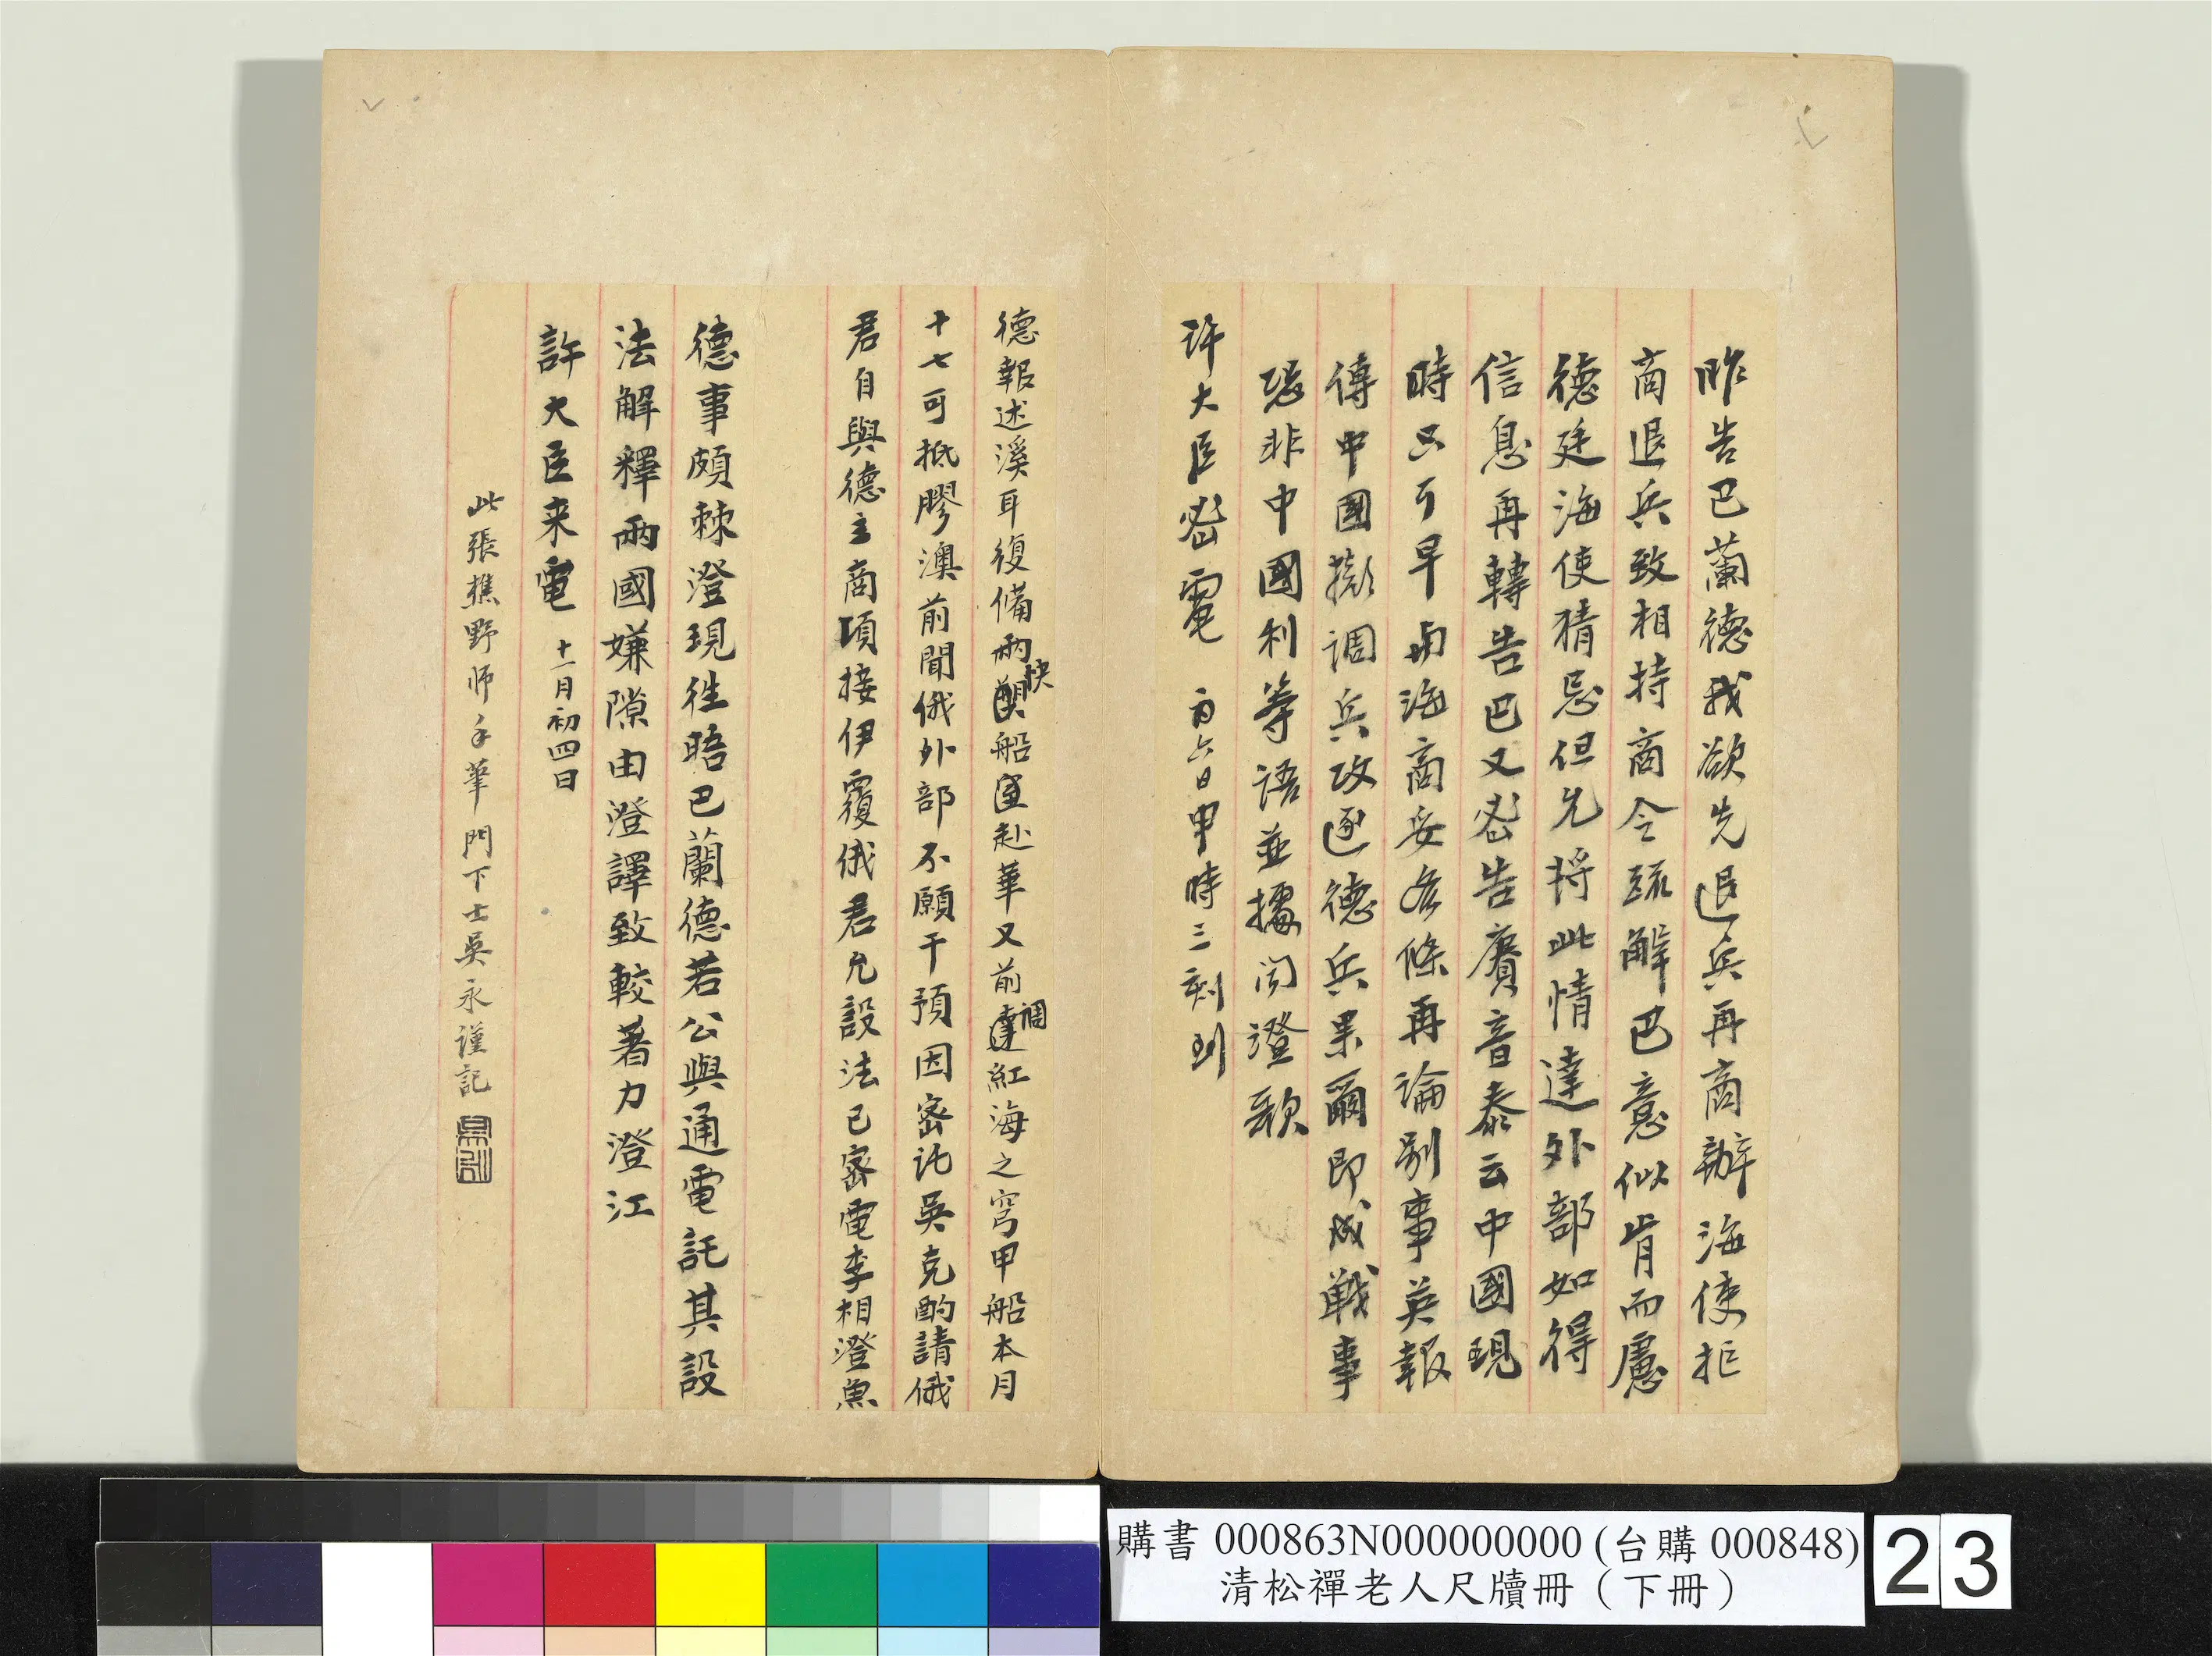 昨告巴蘭德我欲先退兵再商辦海使拒
商退兵致相持商令疏解巴意似肯而慮
德廷海使猜忌但允将此情達外部如得
信息再轉告巴又密告賡音泰云中國現
時只可早与海商妥各條再論别事英報
傳中國擬调兵攻逐德兵果爾即成戰事
恐非中國利等语並據闻澄歌
许大臣密電 初六日申時三刻到
德報述溪耳復備兩快船匯赴華又前調紅海之穹甲船本月
十七可抵膠澳前聞俄外部不願干預因密託吳克酌請俄
君自與德主商項接伊覆俄君允設法已密電李相澄魚
德事頗棘澄現往晤巴蘭德若公與通電託其設
法解釋兩國嫌隙由澄譯致較著力澄江
許大臣来電 十一月初四日
此張樵野师手筆門下士吳永謹記
購書 000863N000000000 (台購 000848)
清松禪老人尺牘冊（下冊）
23